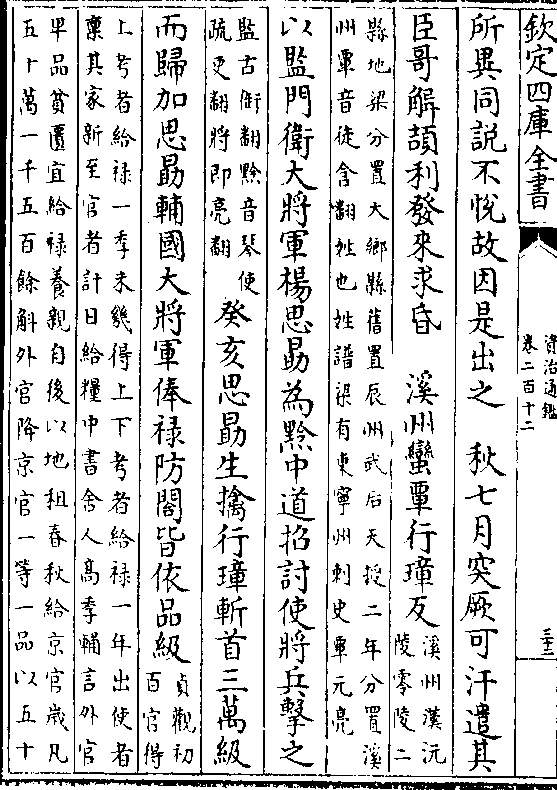 欽定四庫全書
資治通鑑
卷二百十二
三十三
所異同説不悦故因是出之　秋七月突厥可汗遣其
臣哥解頡利發來求昏　溪州蠻覃行璋反
溪州漢沅
陵零陵二
縣地梁分置大鄉縣舊置辰州武后天授二年分置溪
州覃音徒含翻姓也姓譜梁有東寧州刺史覃元亮
以監門衛大將軍楊思勗為黔中道招討使將兵擊之
監古衘翻黔音琴使
疏吏翻將即亮翻
癸亥思勗生擒行璋斬首三萬級
而歸加思勗輔國大將軍俸禄防閤皆依品級
貞觀初
百官得
上考者給禄一季未幾得上下考者給禄一年出使者
稟其家新至官者計日給糧中書舍人髙季輔言外官
卑品貧匱宜給禄養親自後以地租春秋給京官歲凡
五十萬一千五百餘斛外官降京官一等一品以五十